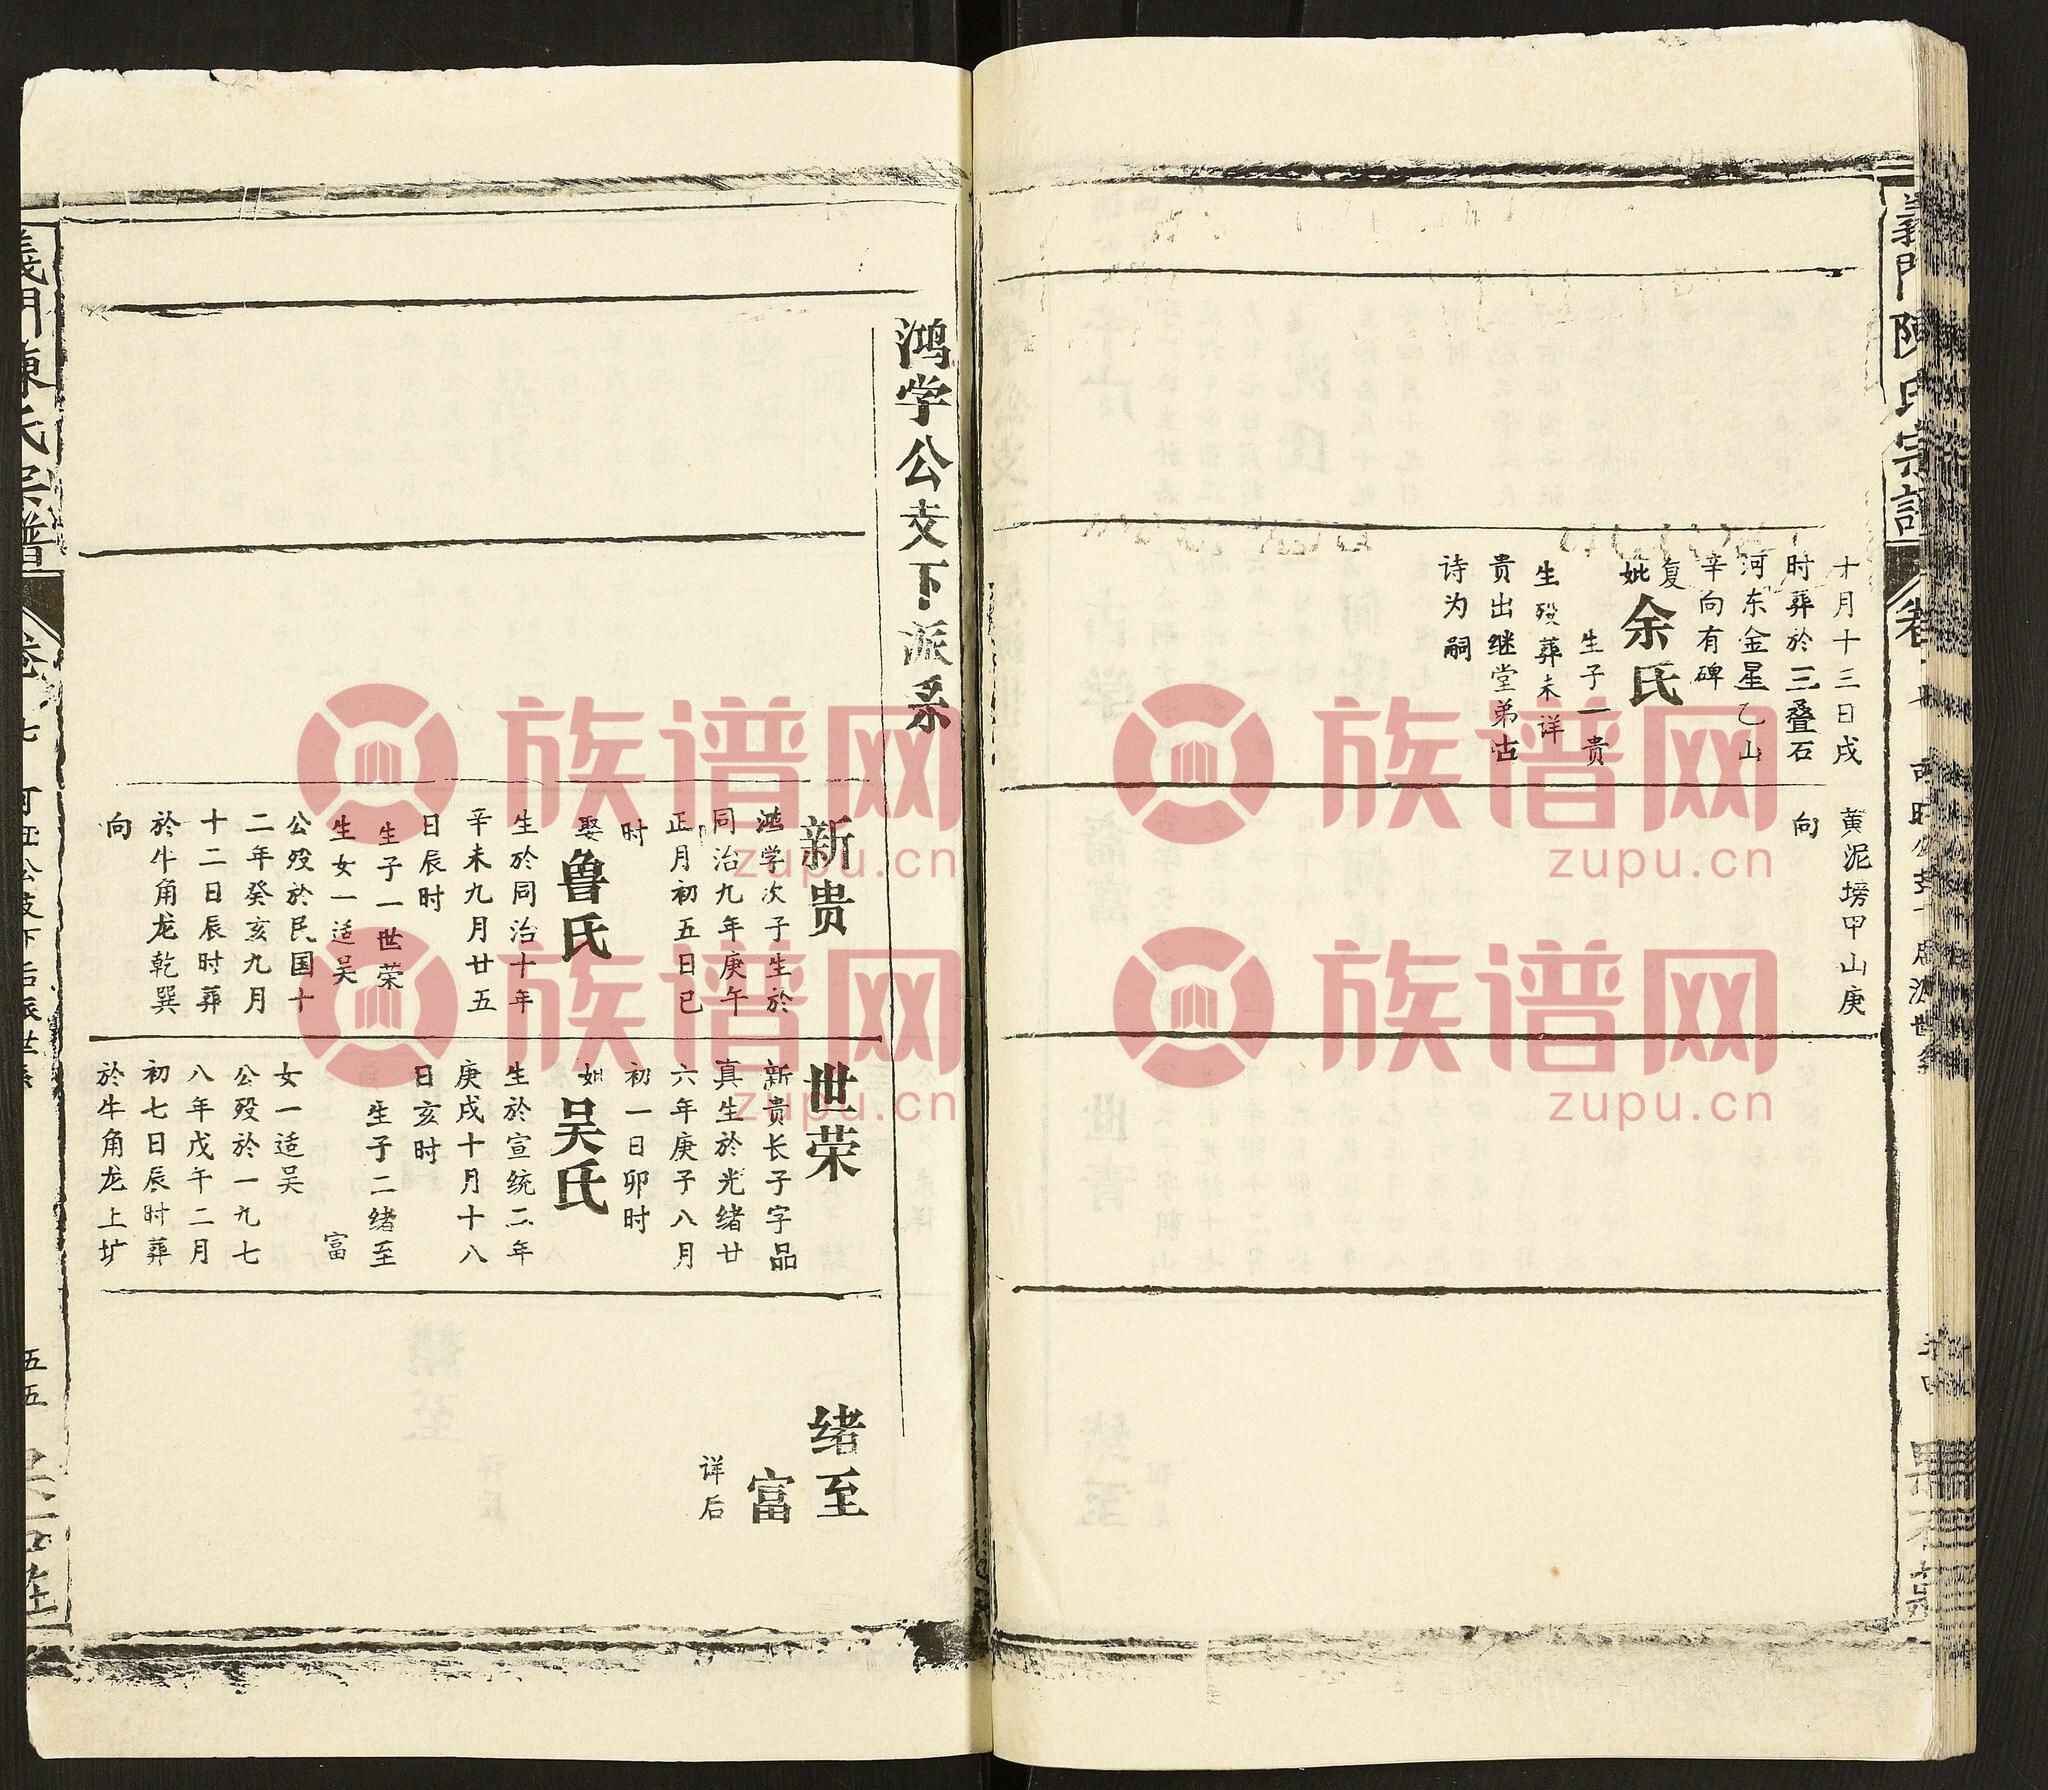 義門陳氏宗譜
十月十三日戌
时葬於三叠石
河东金星乙山
辛向有碑
复
妣余氏
生子一贵
生殁葬未详
贵出继堂弟古
诗为嗣
黄泥塝甲山庚
向
鸿学公支下派系
新贵
鸿学次子生於
同治九年庚午
正月初五日巳
时
娶鲁氏
生於同治十年
辛未九月廿五
日辰时
生子一世荣
生女一适吴
公殁於民国十
二年癸亥九月
十二日辰时葬
於牛角龙乾巽
向
世荣
新贵长子字品
真生於光绪廿
六年庚子八月
初一日卯时
妣吴氏
生於宣统二年
庚戌十月十八
日亥时
生子二绪至
富
女一适吴
公殁於一九七
八年戊午二月
初七日辰时葬
於牛角龙上圹
绪至
富
详后
義門陳氏宗譜
五五
族谱网
zupu.cn
族谱网
zupu.cn
族谱网
zupu.cn
族谱网
zupu.cn